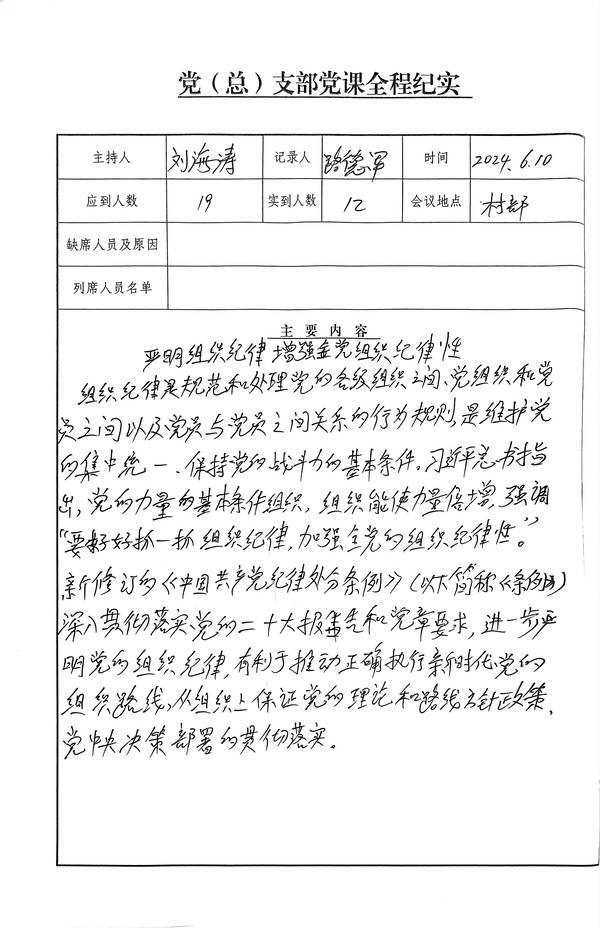 党（总）支部党课全程纪实
主持人 刘海涛 记录人 路德军 时间 2024.6.10
应到人数 19 实到人数 12 会议地点 村部
缺席人员及原因
列席人员名单
主要内容
严明组织纪律 增强全党组织纪律性
组织纪律是规范和处理党的各级组织之间、党组织和党
员之间以及党员与党员之间关系的行为规则,是维护党
的集中统一、保持党的战斗力的基本条件。习近平总书记指
出,党的力量的基本条件组织，组织能使力量倍增,强调
“要好好抓一抓组织纪律,加强全党的组织纪律性”。
新修订的《中国共产党纪律处分条例》(以下简称《条例》)
深入贯彻落实党的二十大报告和党章要求,进一步严
明党的组织纪律,有利于推动正确执行新时代党的
组织路线,从组织上保证党的理论和路线方针政策、
党中央决策部署的贯彻落实。